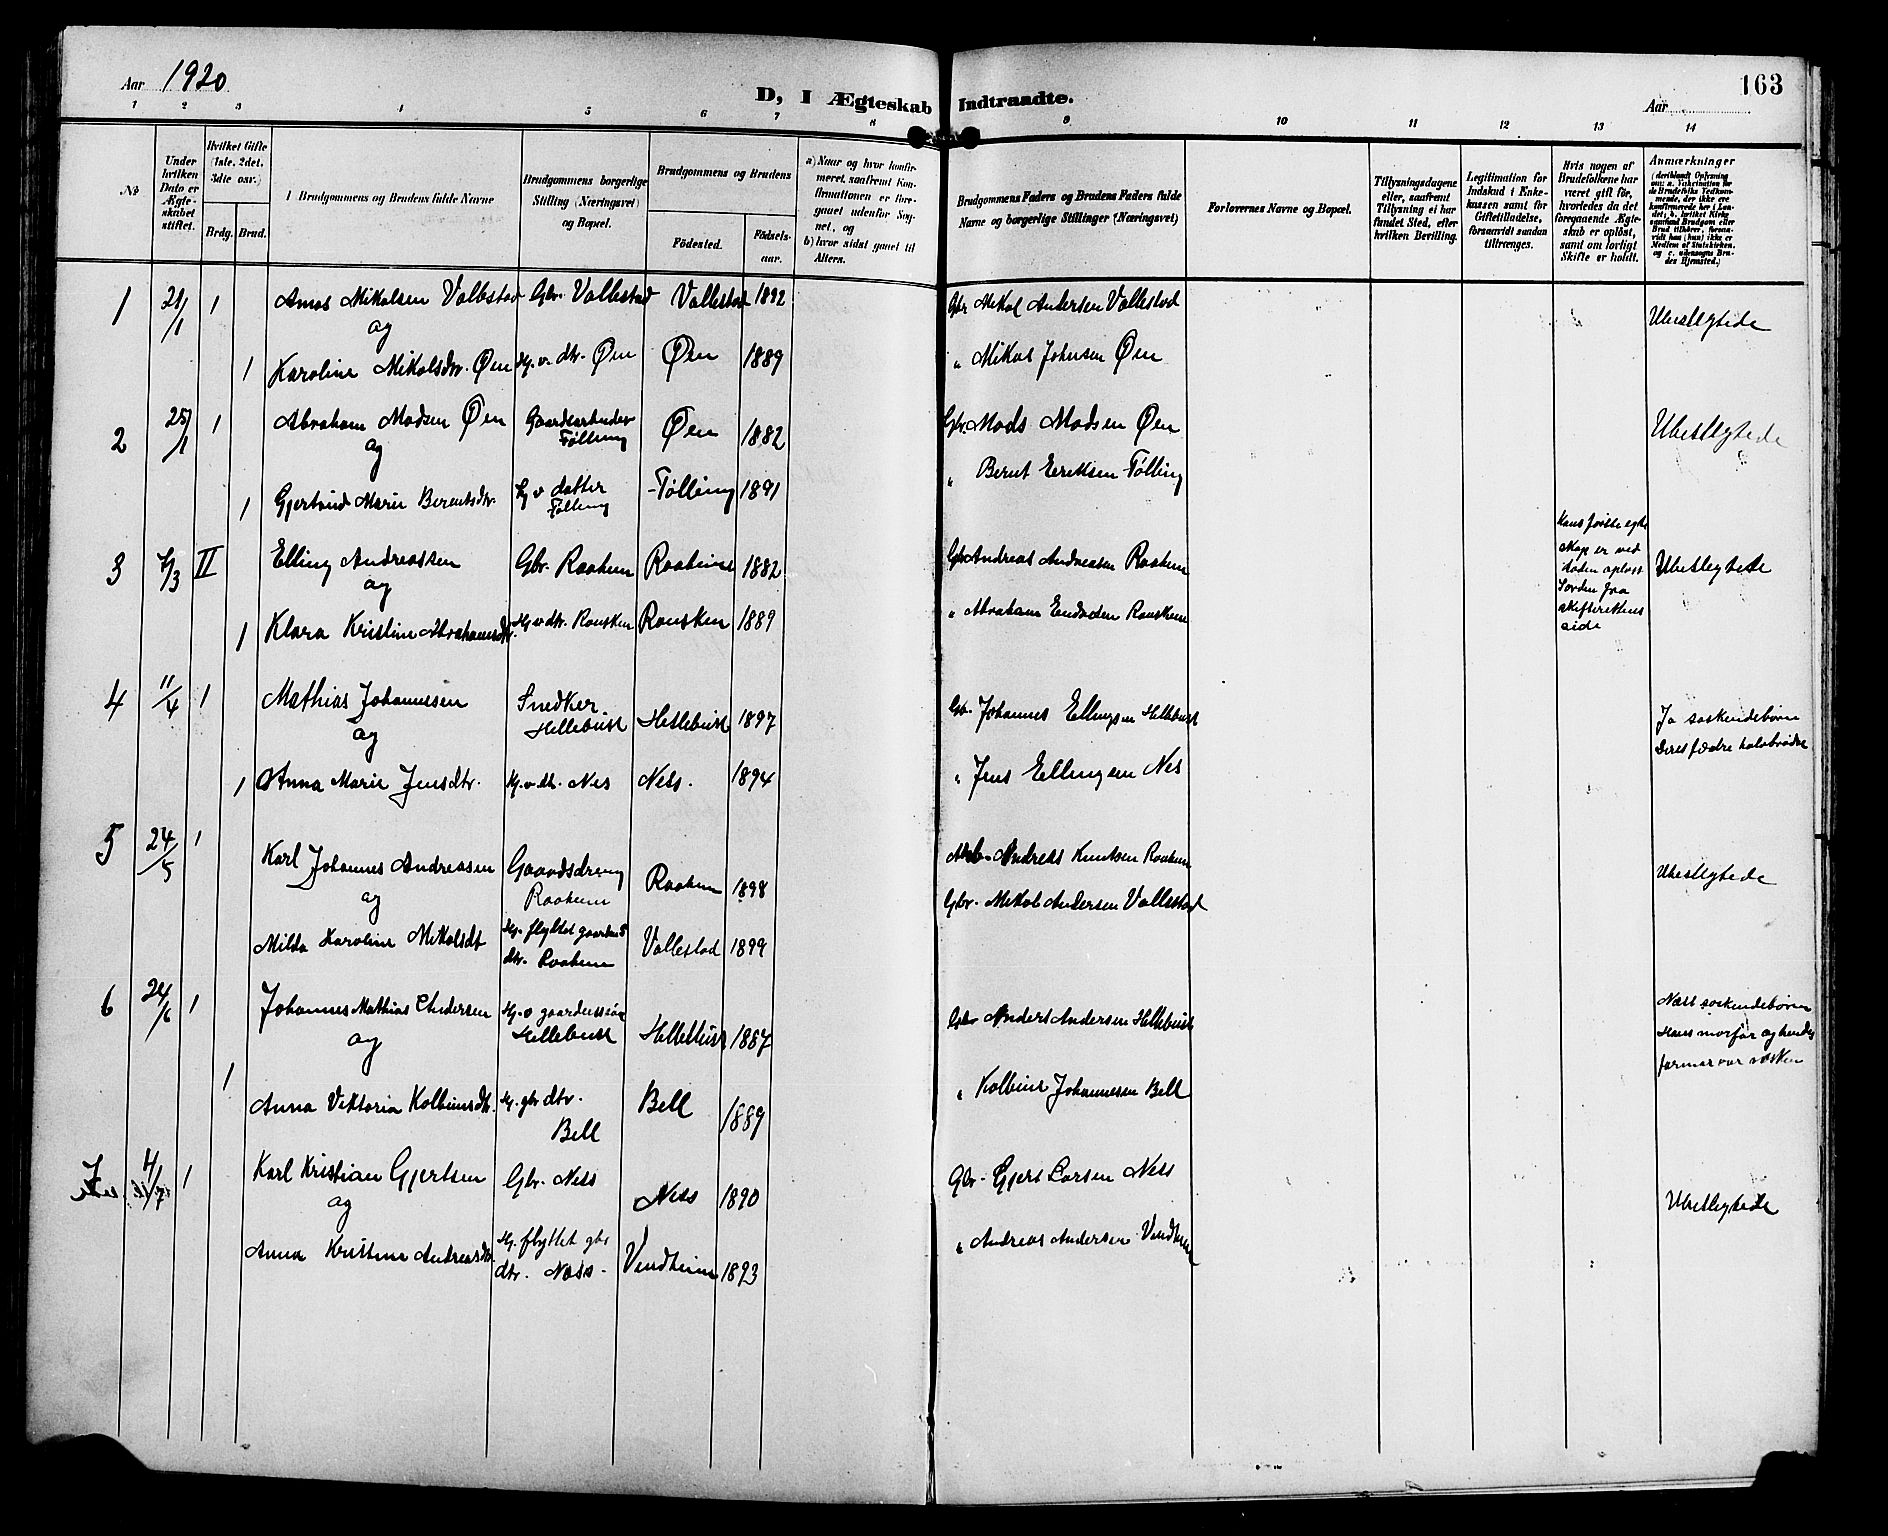 Aar 1920
D, I Ægteskab Indtraadte.
163
Aar
1 2 3 4 5 6 7 8 9 10 11 12 13 14
No
Under hvilken Dato er Ægteskabet stiftet.
Hvilket Gifte (1ste. 2det. 3dte osv.)
Brdg. Brud.
Brudgommens og Brudens fulde Navne
Brudgommens borgerlige Stilling (Næringsvei) og Bopæl.
Brudgommens og Brudens
Födested.
Födselsaar.
a) Naar og hvor konfirmeret, saafremt Konfirmationen er foregaaet udenfor Sognet, og
b) hvor sidst gaaet til Alters.
Brudgommens Faders og Brudens Faders fulde Navne og borgerlige Stillinger (Næringsvei)
Forlovernes Navne og Bopæl.
Tillysningsdagene eller, saafremt Tillysning ei har fundet Sted, efter hvilken Bevilling.
Legitimation for Indskud i Enkekassen samt for Giftetilladelse, forsaavidt saadan tiltrænges.
Hvis nogen af Brudefolkene har været gift för, hvorledes da det foregaaende Ægteskab er oplöst, samt om lovligt Skifte er holdt.
Anmærkninger
1 21/1 1 Amos Mikalsen Vallestad Gbr. Vallestad Vallestad 1892 Gbr Mikal Andersen Vallestad Ubeslegtede
og
1 Karoline Mikalsdtr. Øen Hj. v. dtr. Øen Øen 1889 " Mikal Johnsen Øen
2 25/1 1 Abraham Madsen Øen Gaardsarbeider Følling Øen 1882 Gbr Mads Madsen Øen Ubeslegtede
og
1 Gjertrud Marie Berentsdtr. Hj v datter Følling Følling 1891 " Bernt Eriksen Følling
3 7/3 II Elling Andreassen Gbr. Raaheim Raaheim 1882 Gbr Andreas Andreasen Raaheim Ubeslegtede
Hans første egteskap er ved døden opløst
skifterettens side
og
1 Klara Kristine Abrahamsdtr. Hj v dtr. Rausken Rausken 1889 " Abraham Rausken
4 11/4 1 Mathias Johannesen Snedker Hellebust Hellebust 1897 Gbr. Johannes Ellingsen Hellebust Ja søskendebørn
Deres fædre halvbrødre
og
1 Anna Marie Jensdtr. Hj. v. dtr. Nes Ness. 1894 " Jens Ellingsen Nes
5 24/5 1 Karl Johannes Andreasen Gaardsdreng Raaheim Raaheim 1898 Andreas Knutsen Raaheim Ubeslegtede
og
Milda Karoline Mikalsdt Hj. flyttet gaardm. dtr. Raaheim Vallestad 1899 Gbr. Mikal Andersen Vallestad
6 24/6 1 Johannes Mathias Andersen Hj. v gaardmssøn Hellebust Hellebust 1887 Gbr Anders Andersen Hellebust Næst søskendebørn
Hans morfar og hendes
farmor var søsken
og
1 Anna Viktoria Kolbeinsdtr. Hj. gbr dtr. Bell Bell 1889 " Kolbein Johannesen Bell
1 Karl Kristian Gjertsen Gbr. Ness Ness 1890 Gbr. Gjert Larsen Ness Ubeslegtede
og
Anna Kristine Andreasdtr. Hj. flyttet gbr dtr. Ness. Vindheim 1893 " Andreas Andersen Vindheim